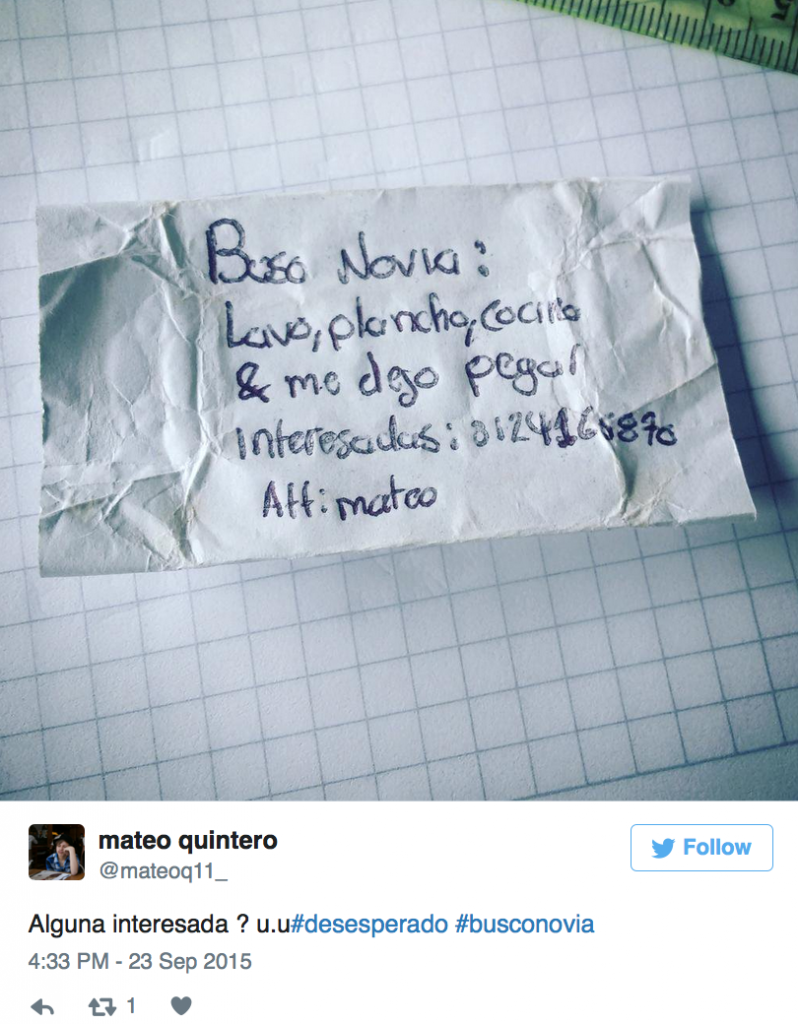 Busco Novia:
Lavo, plancho, cocino
& me dejo pegar
interesadas:
Att: mateo
mateo quintero
@mateoq11_
Follow
Alguna interesada ? u.u#desesperado #busconovia
4:33 PM - 23 Sep 2015
1